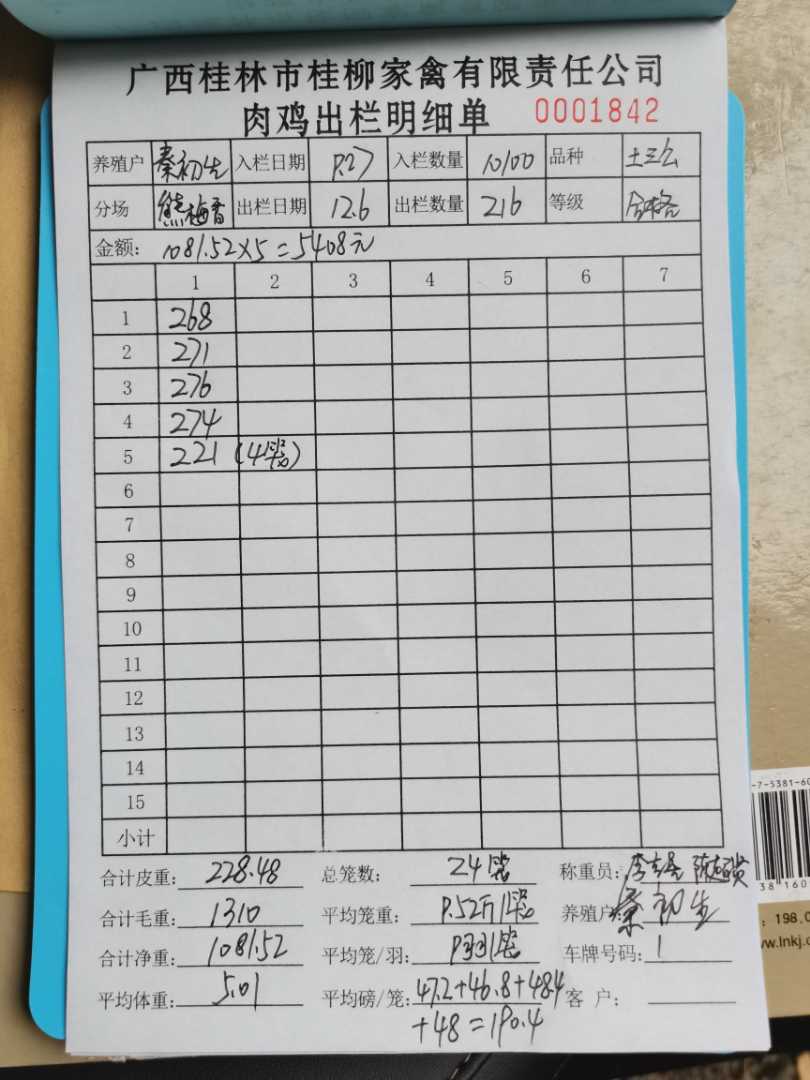 广西桂林市桂柳家禽有限责任公司
肉鸡出栏明细单 0001842
养殖户 秦初生 入栏日期 9.27 入栏数量 10100 品种 土三公
分场 熊梅香 出栏日期 12.6 出栏数量 216 等级 合格
金额: 1081.52×5=5408元
1 2 3 4 5 6 7
1 268
2 271
3 276
4 274
5 221 (4笼)
6
7
8
9
10
11
12
13
14
15
小计
合计皮重: 228.48 总笼数: 24笼 称重员:
合计毛重: 1310 平均笼重: 9.52斤/笼 养殖户 秦初生
合计净重: 1081.52 平均笼/羽: 9羽/笼 车牌号码: 1
平均体重: 5.01 平均磅/笼: 47.2+46.8+48.4 客 户:
+48=190.4
-7-5381-60
38 160
: 198.0
ww.lnkj.c